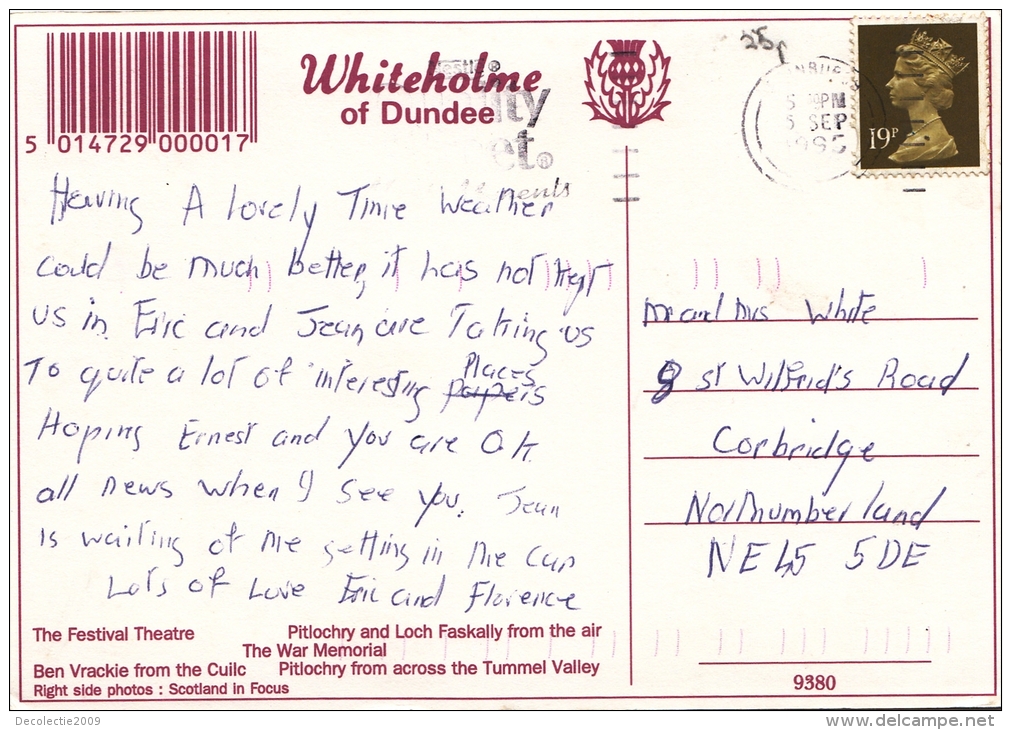 Whiteholme
of Dundee
5 014729 000017
25p
19P
PM
5 SEP
Having A lovely Time Weather
could be much better, it has not kept
us in. Eric and Jean are Taking us
To quite a lot of interesting Places
Hoping Ernest and you are O.K.
all news when I see you. Jean
is waiting of me getting in the car
Lots of Love Eric and Florence
Mr and Mrs White
8 St Wilfrid's Road
Corbridge
Northumberland
NE45 5DE
The Festival Theatre
Pitlochry and Loch Faskally from the air
The War Memorial
Ben Vrackie from the Cuilc
Pitlochry from across the Tummel Valley
Right side photos : Scotland in Focus
9380
Decolectie2009
www.delcampe.net